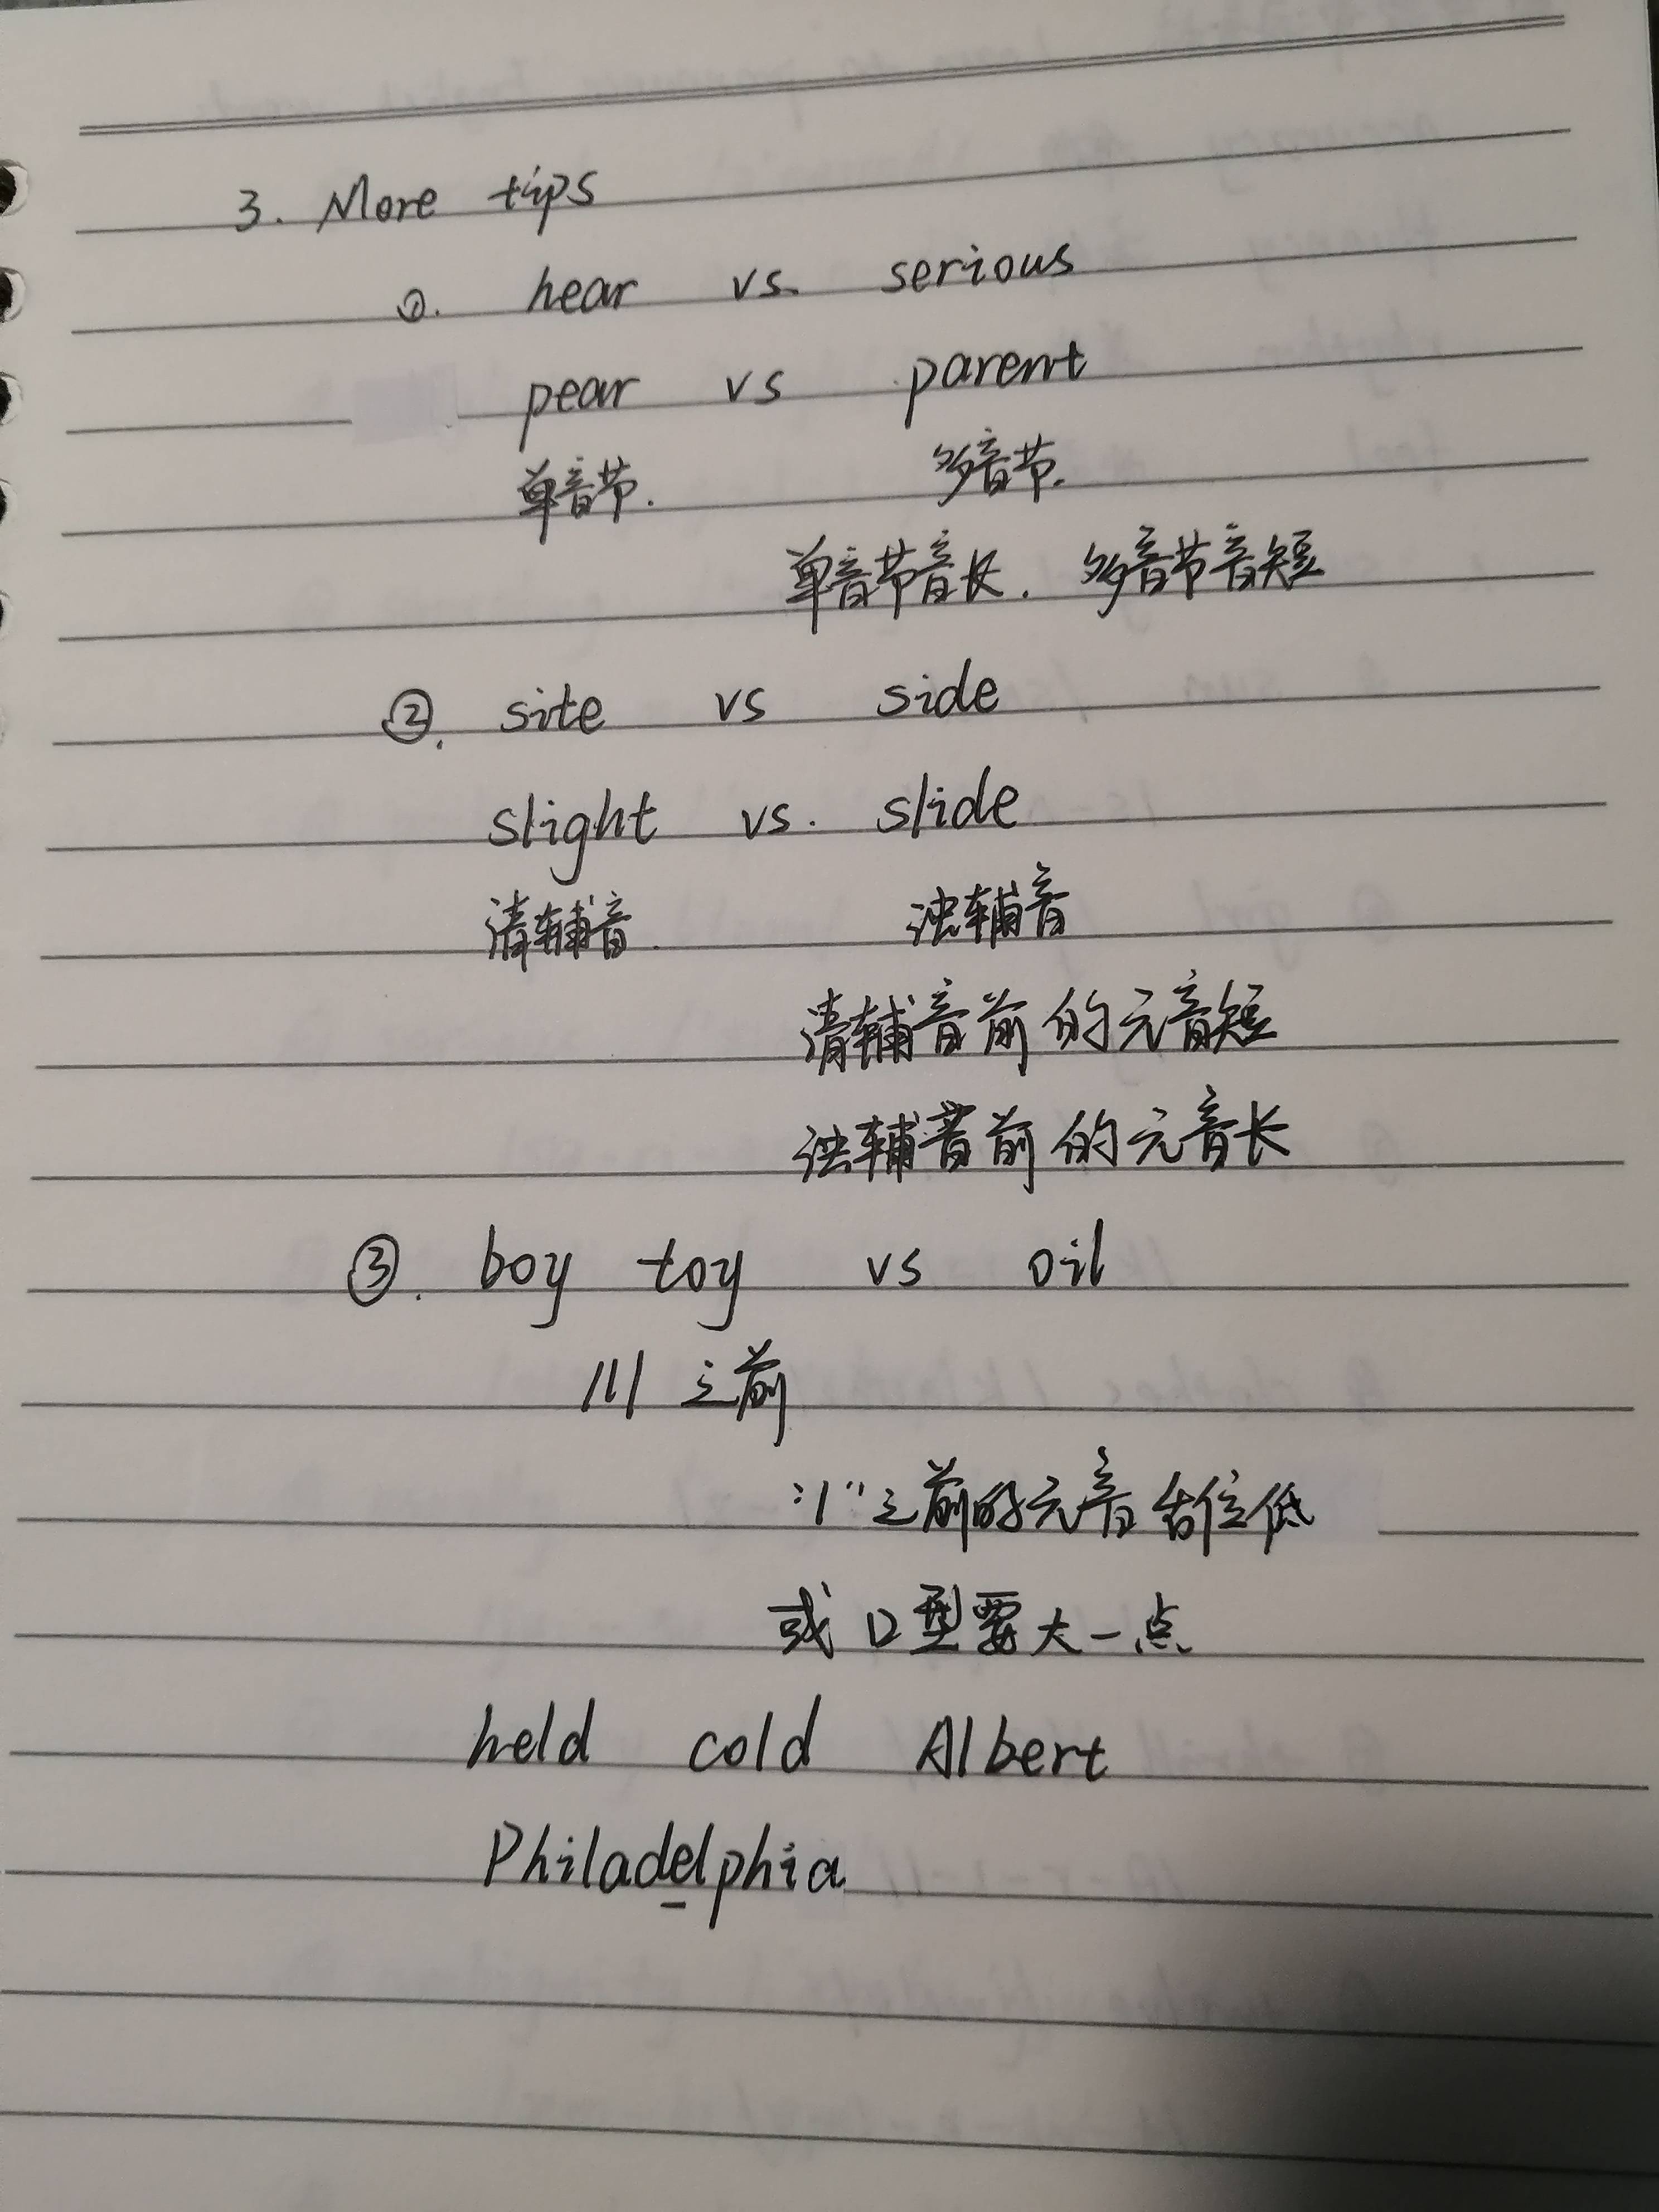 3. More tips
①. hear vs. serious
pear vs parent
单音节. 多音节.
单音节音长. 多音节音短
②. site vs side
slight vs. slide
清辅音. 浊辅音
清辅音前的元音短
浊辅音前的元音长
③. boy toy vs oil
/l/ 之前
"l" 之前的元音舌位低
或口型要大一点
held cold Albert
Philadelphia